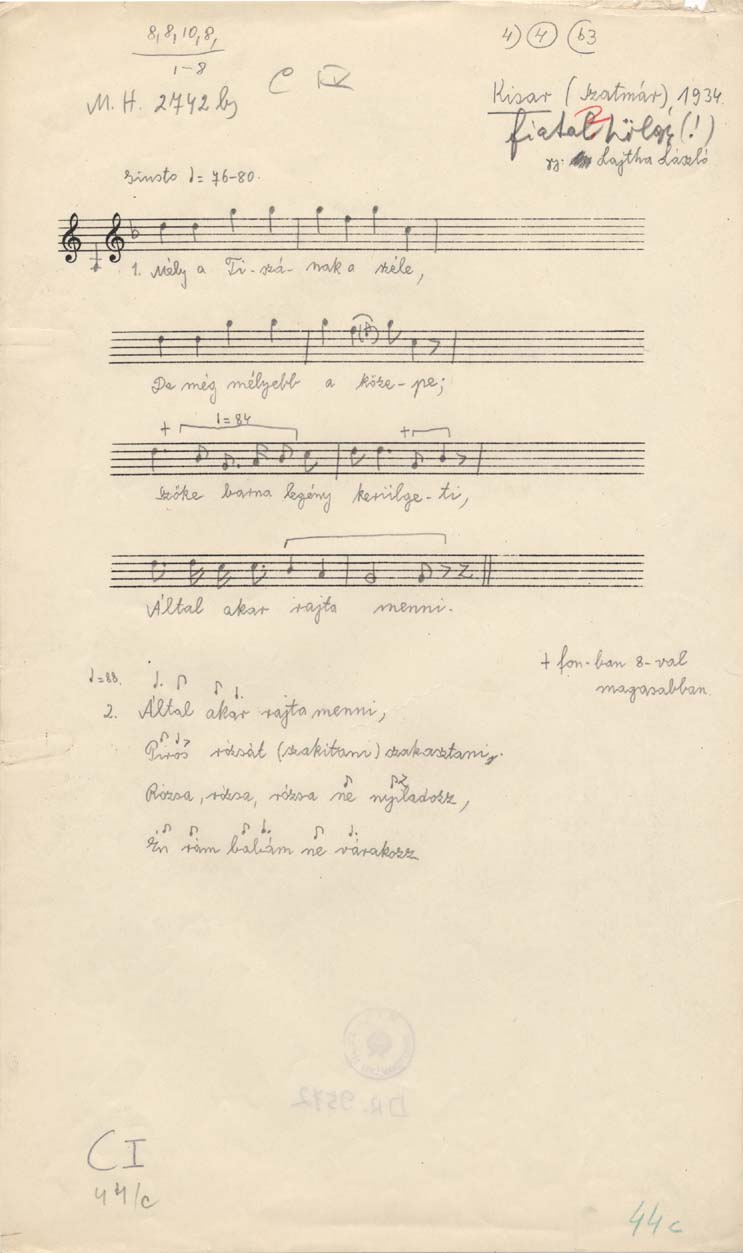 8, 8, 10, 8,
1-8
4) 4 b3
C IV
M. H. 2742 b)
Kisar (Szatmár), 1934.
fiatal hölgy (!)
gy: Lajtha László
Giusto ♩= 76-80.
1. Mély a Ti-szá-nak a széle,
De még mélyebb a köze-pe;
+ ♩=84 +
Szőke barna legény kerülge-ti,
Által akar rajta menni.
+ fon-ban 8-val
magasabban.
♩=88.
2. Által akar rajta menni,
Piros rózsát (szakitani) szakasztani,
Rózsa, rózsa, rózsa ne nyiladozz,
Én rám babám ne várakozz
DR. 9572
CI
44/c
44c